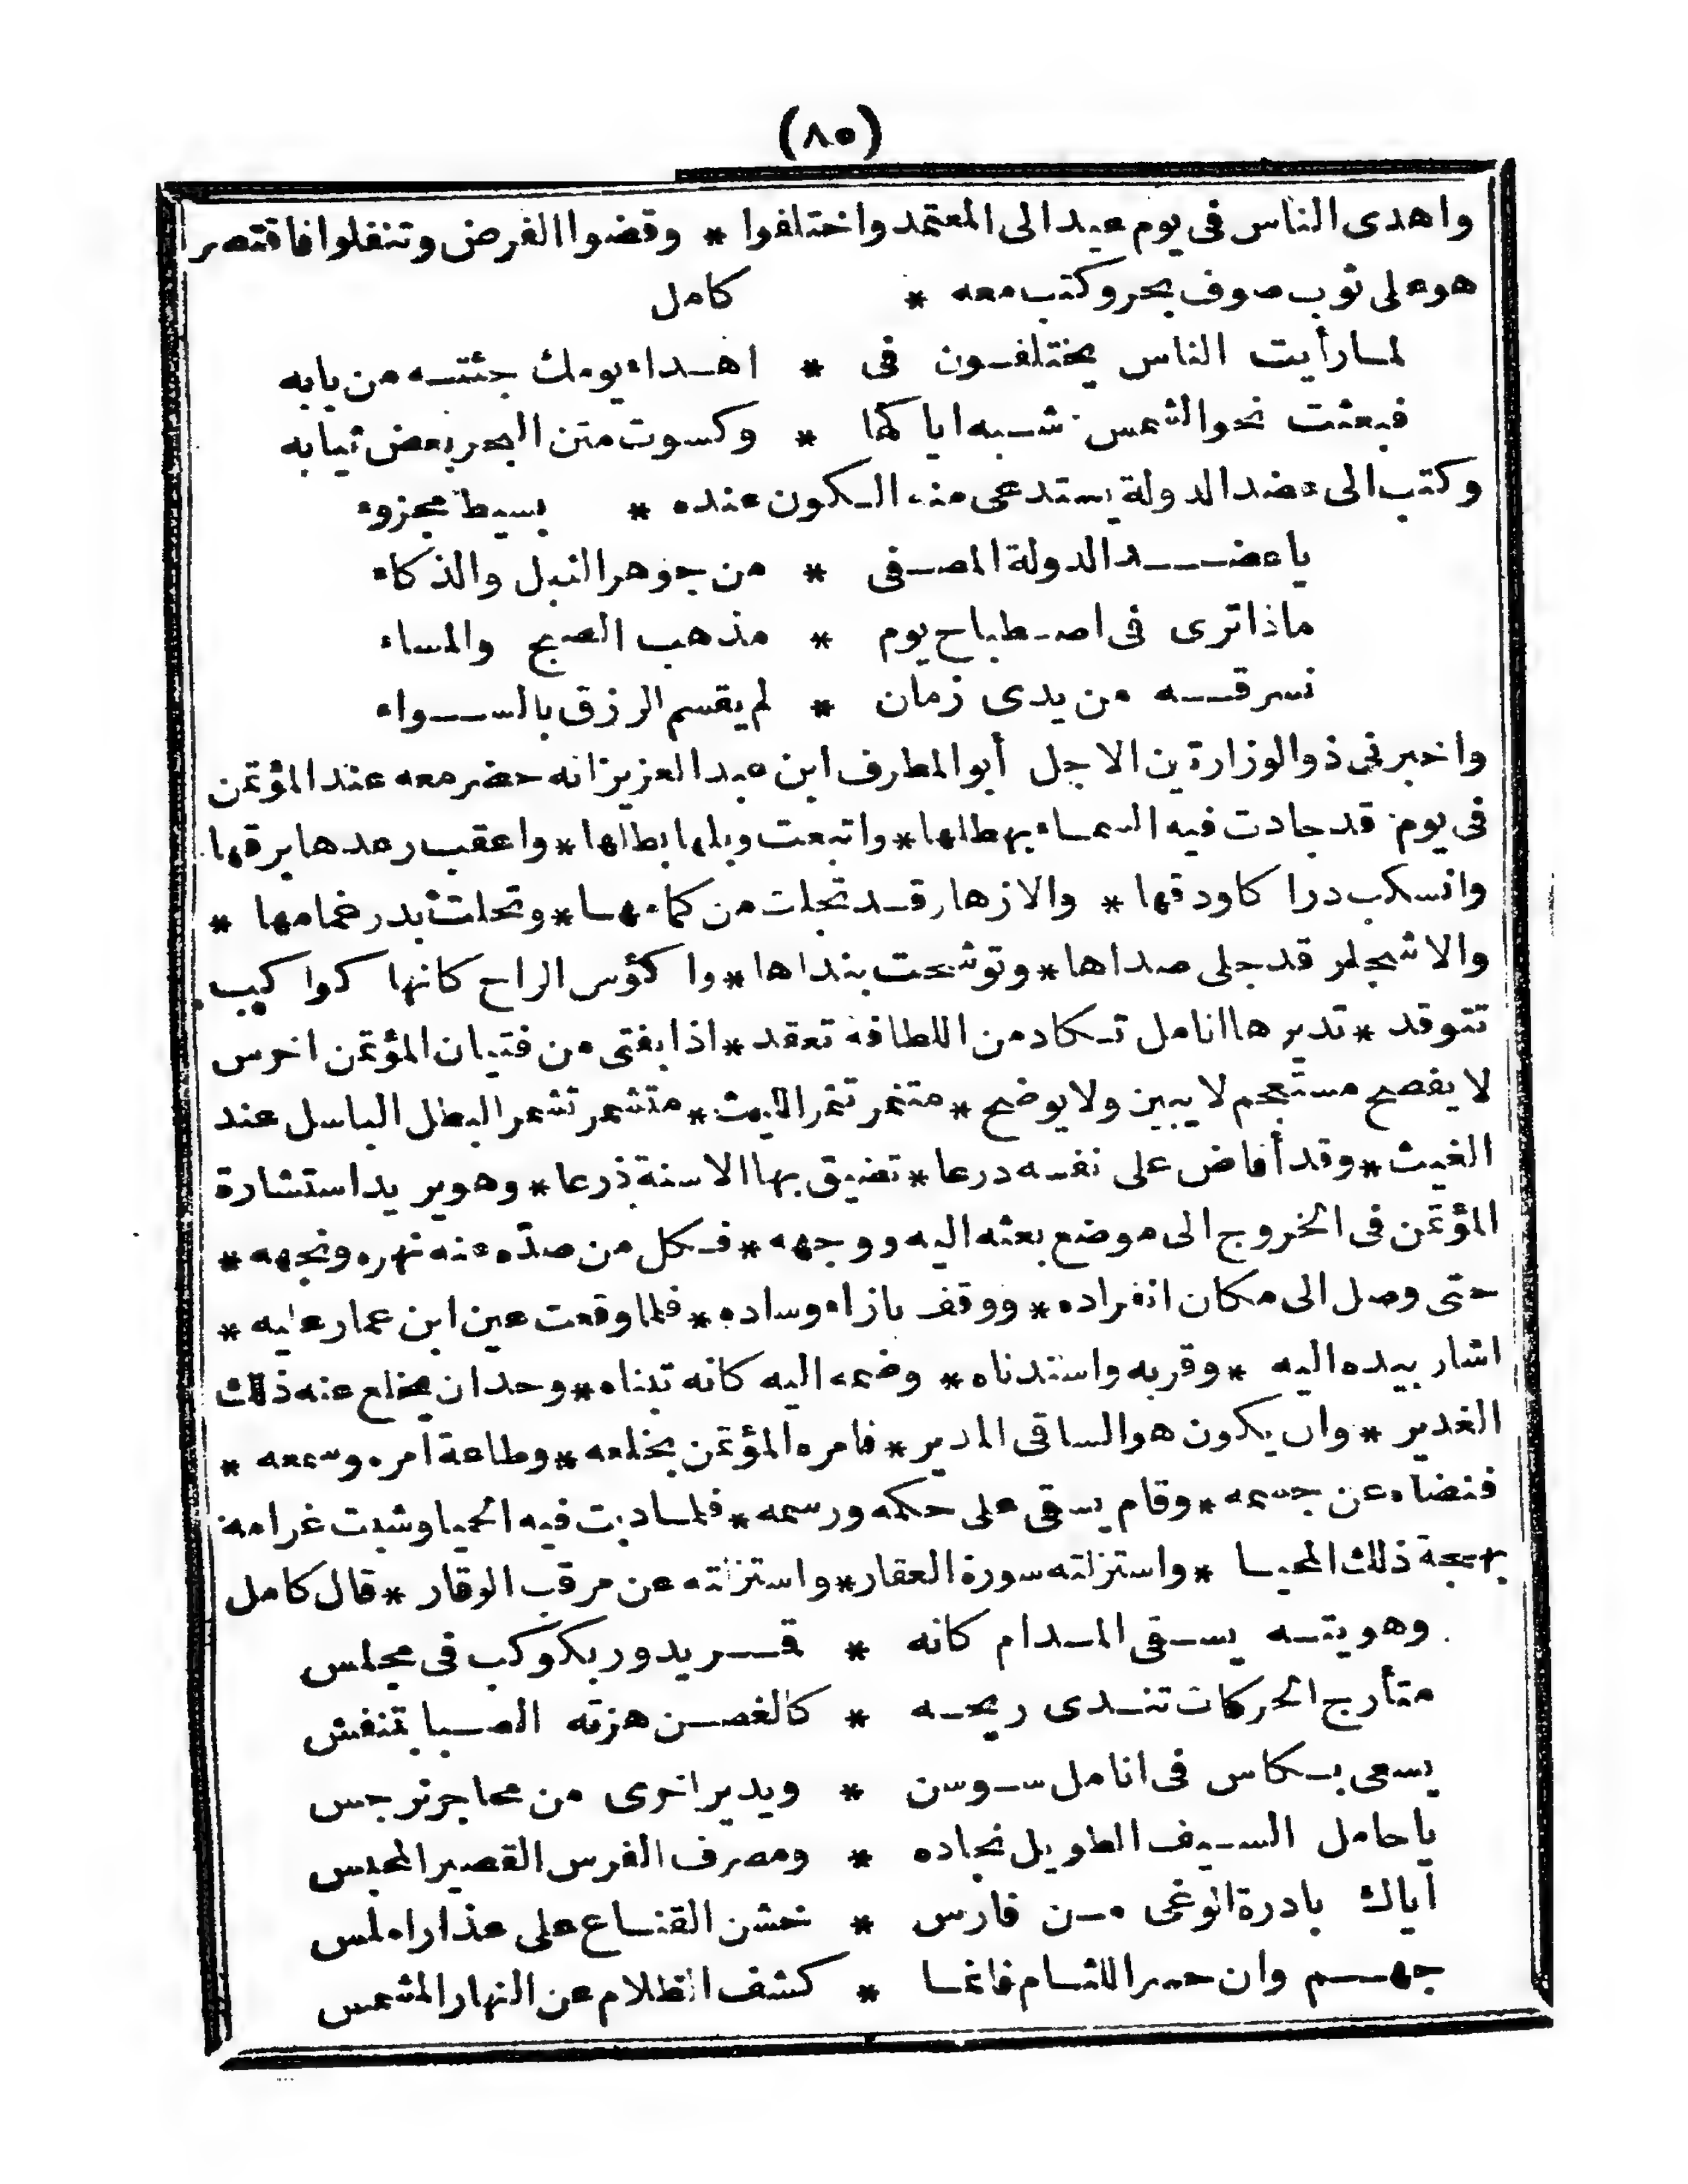 (٨٥)
واهدى الناس فى يوم عيد الى المعتمد واختلفوا * وقضوا الفرض وتنفلوا فاقتصر
هو على ثوب صوف بحر وكتب معه * كامل
لما رأيت الناس يختلفون فى * اهداء يومك جئته من بابه
فبعثت نحو الشمس شبه اياتها * وكسوت متن البحر بعض ثيابه
وكتب الى عضد الدولة يستدعى منه الكون عنده * بسيط مجزوء
يا عضد الدولة المصفى * من جوهر النبل والذكاء
ماذا ترى فى اصطباح يوم * مذهب الصبح والمساء
نسرقه من يدى زمان * لم يقسم الرزق بالسواء
واخبرنى ذو الوزارتين الاجل أبو المطرف ابن عبد العزيز انه حضر معه عند المؤتمن
فى يوم قد جادت فيه السماء بهطلها * واتبعت وبلها بطلها * واعقب رعدها برقها
وانسكب دراكا ودقها * والازهار قد تجلت من كمامها * وتحلت بدر غمامها *
والاشجار قد جلى صداها * وتوشحت بنداها * واكؤس الراح كانها كواكب
تتوقد * تديرها انامل تكاد من اللطافة تعقد * اذا بفتى من فتيان المؤتمن اخرس
لا يفصح مستعجم لا يبين ولا يوضح * متنمر تنمر الليث * متشمر تشمر البطل الباسل عند
الغيث * وقد أفاض على نفسه درعا * تضيق بها الاسنة ذرعا * وهو يريد استشارة
المؤتمن فى الخروج الى موضع بعثه اليه ووجهه * فكل من صدّه عنه نهره ونجهه *
حتى وصل الى مكان انفراده * ووقف بازاء وساده * فلما وقعت عين ابن عمار عليه *
اشار بيده اليه * وقربه واستدناه * وضمه اليه كانه تبناه * وحد ان يخلع عنه ذلك
الغدير * وان يكون هو الساقى المدير * فامره المؤتمن بخلعه * وطاعة امره وسمعه *
فنضاه عن جسمه * وقام يسقى على حكمه ورسمه * فلما دبت فيه الحميا وشبت غرامه
بهجة ذلك المحيا * واستزلته سورة العقار * واستنزلته عن مرقب الوقار * قال كامل
وهويته يسقى المدام كانه * قمر يدور بكوكب فى مجلس
متأرج الحركات تندى ريحه * كالغصن هزته الصبا بتنفس
يسعى بكاس فى انامل سوسن * ويدير اخرى من محاجر نرجس
يا حامل السيف الطويل نجاده * ومصرف الفرس القصير المحبس
اياك بادرة الوغى من فارس * خشن القناع على عذار املس
جهم وان حسر اللثام فانما * كشف الظلام عن النهار المشمس